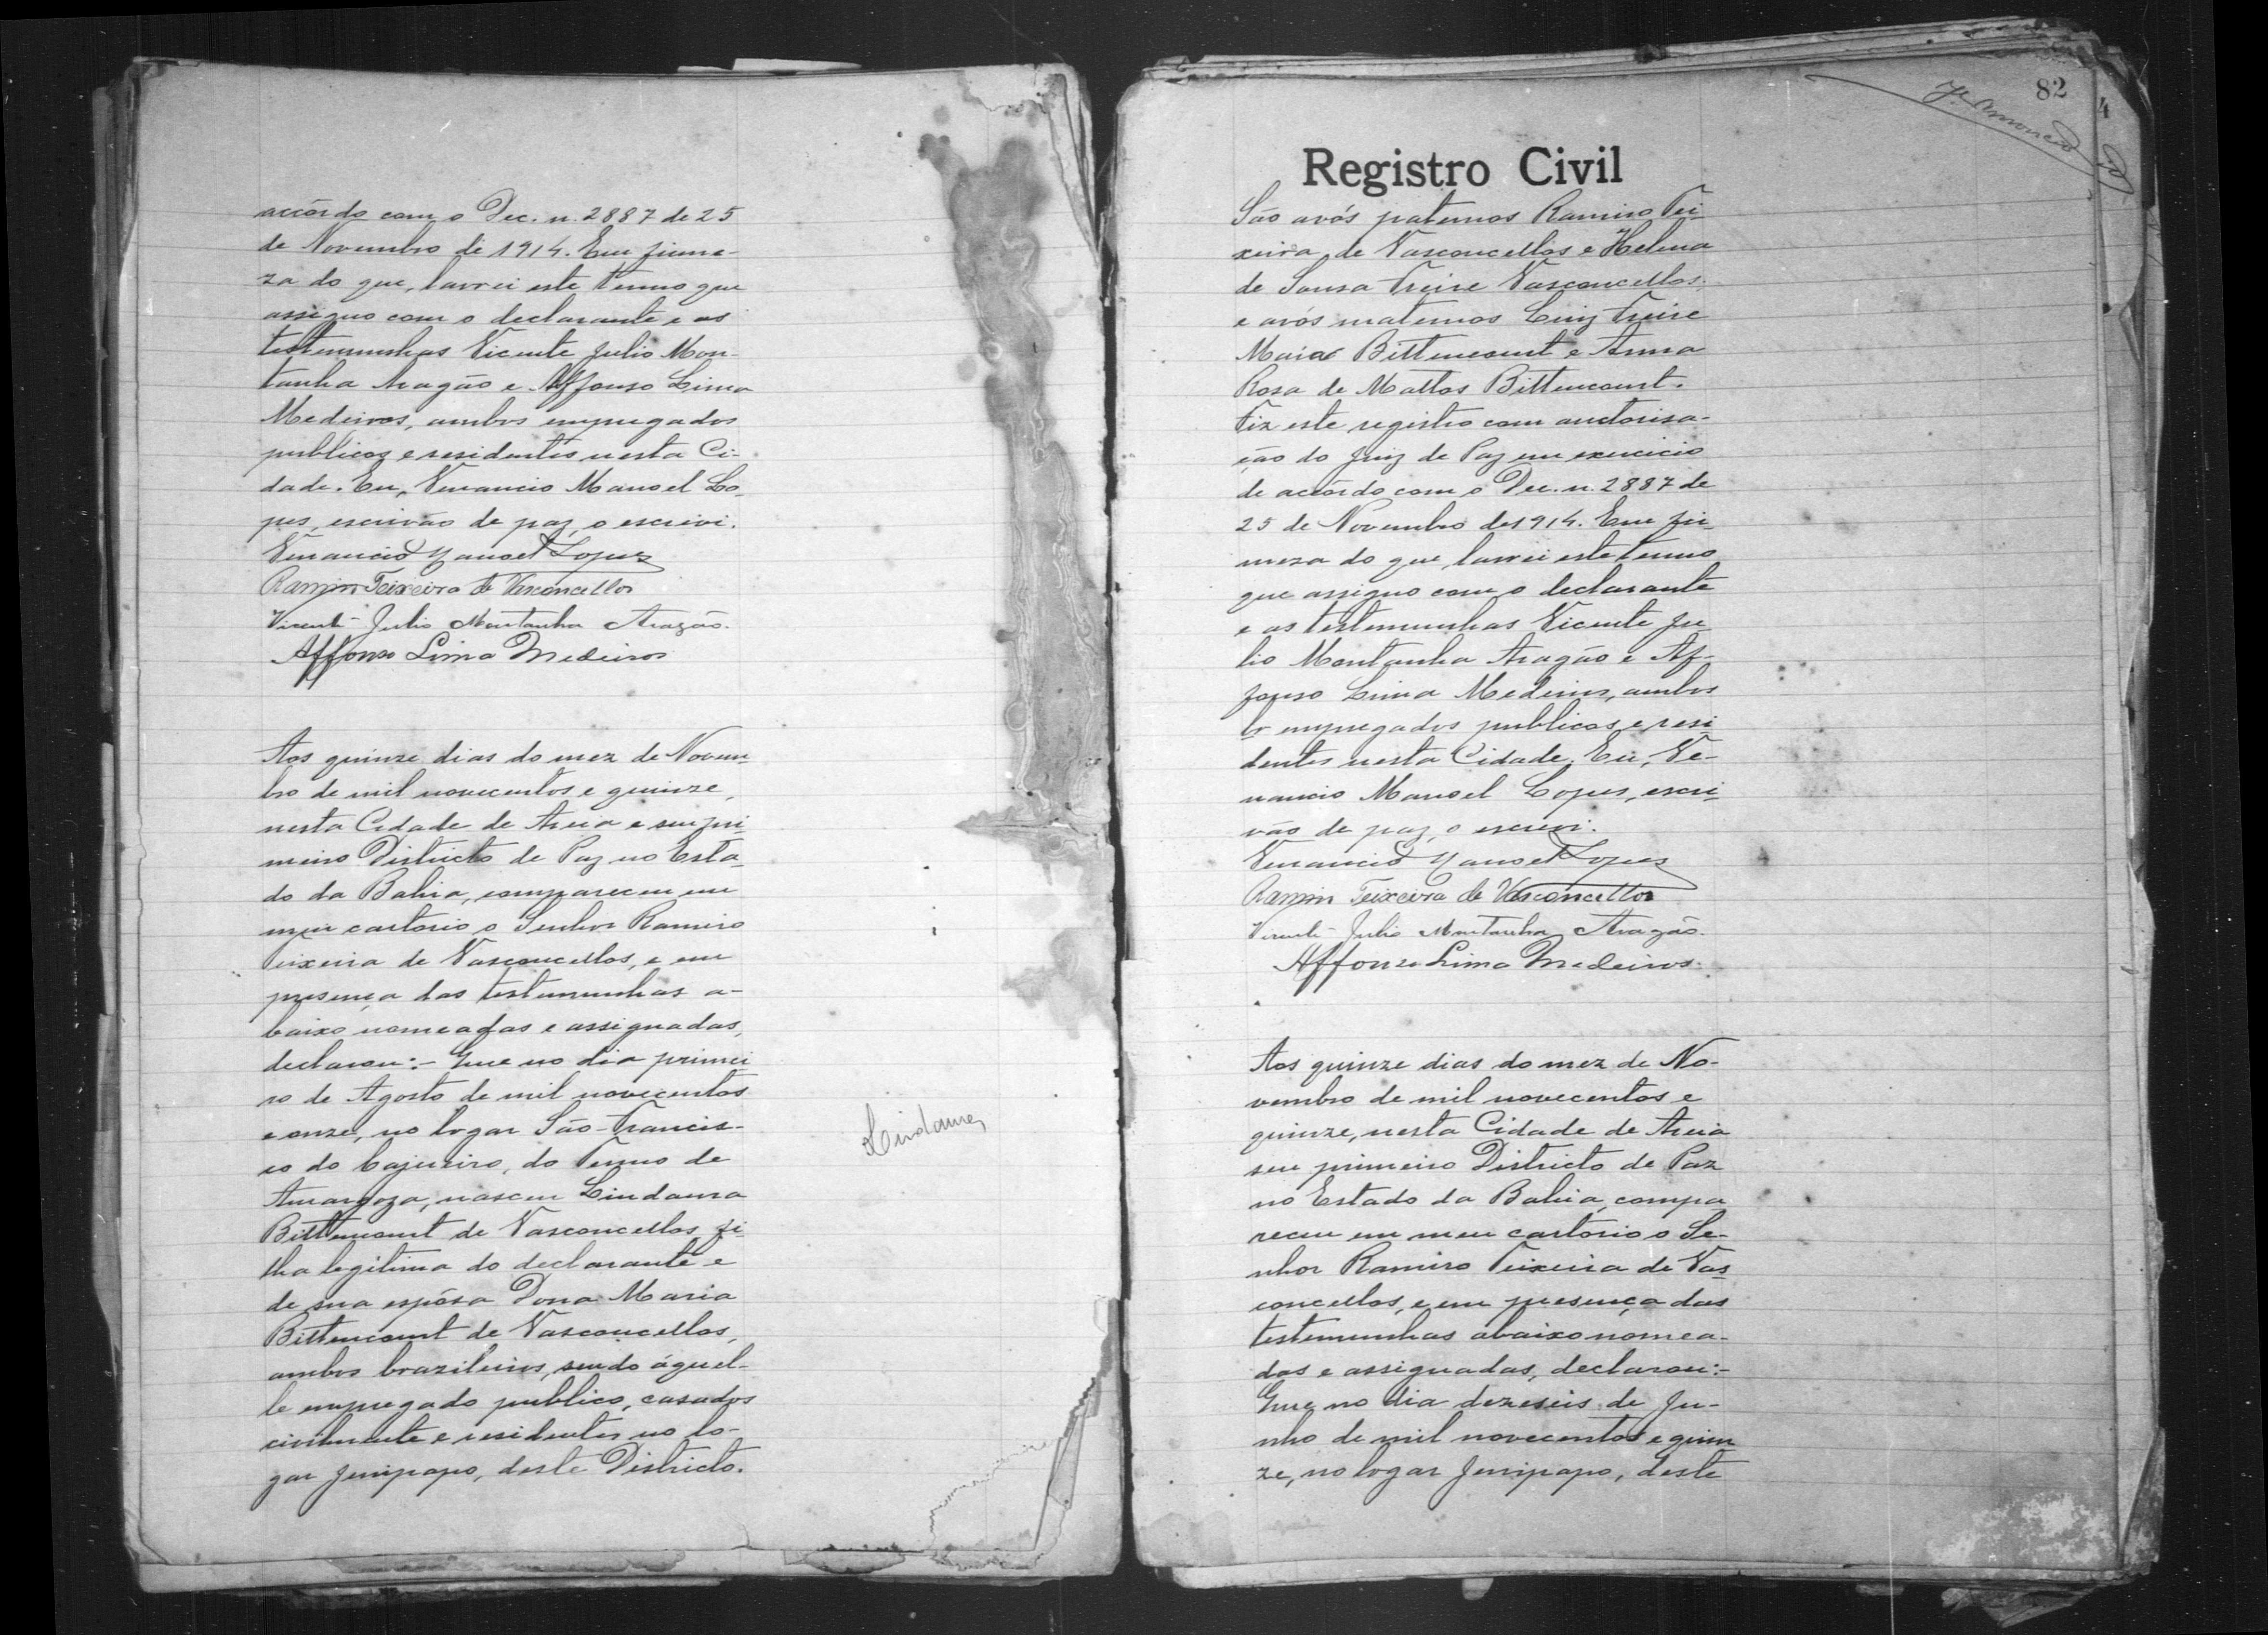 accôrdo com o Dec. n. 2887 de 25
de Novembro de 1914. Em firme-
za do que, lavrei este termo que
assigno com o declarante e as
testemunhas Vicente Julio Mon-
tanha Aragão e Affonso Lima
Medeiros, ambos empregados
publicos e residentes nesta Ci-
dade. Eu, Venancio Manoel Lo-
pes, escrivão de paz, o escrevi.
Venancio Manoel Lopes
Ramiro Teixeira de Vasconcellos
Vicente Julio Montanha Aragão.
Affonso Lima Medeiros
Aos quinze dias do mez de Novem-
bro de mil novecentos e quinze,
nesta Cidade de Areia e seu pri-
meiro Districto de Paz no Esta-
do da Bahia, compareceu em
meu cartorio o Senhor Ramiro
Teixeira de Vasconcellos, e em
presença das testemunhas a-
baixo nomeadas e assignadas,
declarou:- Que no dia primei-
ro de Agosto de mil novecentos
e onze, no logar São Francis-
co do Cajueiro, do Termo de
Amargoza, nasceu Lindaura
Bittencourt de Vasconcellos, fi-
lha legitima do declarante e
de sua espôsa Dona Maria
Bittencourt de Vasconcellos,
ambos brazileiros, sendo áquel-
le empregado publico, casados
civilmente e residentes no lo-
gar Jenipapo, deste Districto.
Lindaura
82
Registro Civil
São avós paternos Ramiro Tei-
xeira de Vasconcellos e Helena
de Sousa Freire Vasconcellos;
e avós maternos Luiz Freire
Maia Bittencourt e Anna
Rosa de Mattos Bittencourt.
Fiz este registro com auctorisa-
ção do Juiz de Paz em exercicio
de accôrdo com o Dec. n. 2887 de
25 de Novembro de 1914. Em fir-
meza do que, lavrei este termo
que assigno com o declarante
e as testemunhas Vicente Ju-
lio Montanha Aragão e Af-
fonso Lima Medeiros, ambos
empregados publicos e resi-
dentes nesta Cidade. Eu, Ve-
nancio Manoel Lopes, escri-
vão de paz, o escrevi.
Venancio Manoel Lopes
Ramiro Teixeira de Vasconcellos
Vicente Julio Montanha Aragão.
Affonso Lima Medeiros.
Aos quinze dias do mez de No-
vembro de mil novecentos e
quinze, nesta Cidade de Areia
seu primeiro Districto de Paz
no Estado da Bahia, compa-
receu em meu cartorio o Se-
nhor Ramiro Teixeira de Vas-
concellos, e em presença das
testemunhas abaixo nomea-
das e assignadas, declarou:-
Que no dia dezeseis de Ju-
nho de mil novecentos e quin-
ze, no logar Jenipapo, deste